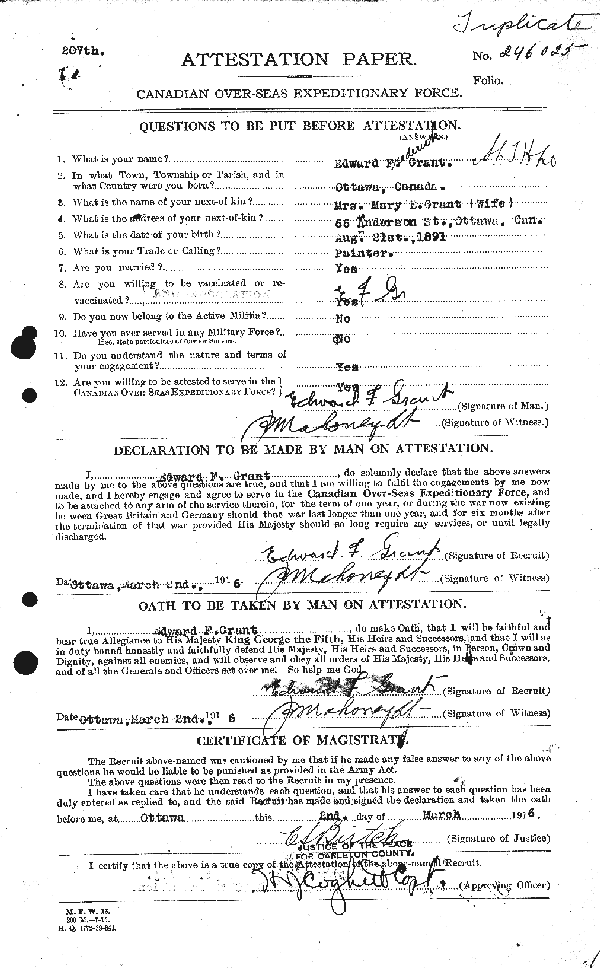 Triplicate
207th.
No. 246025
ATTESTATION PAPER.
Folio.
CANADIAN OVER-SEAS EXPEDITIONARY FORCE.
QUESTIONS TO BE PUT BEFORE ATTESTATION.
(ANSWERS)
1. What is your name? Edward F. Grant.
2. In what Town, Township or Parish, and in
what Country were you born? Ottawa, Canada.
3. What is the name of your next-of-kin? Mrs. Mary E. Grant (Wife)
4. What is the address of your next-of-kin? 66 Anderson St., Ottawa, Can.
5. What is the date of your birth? Aug. 21st., 1891
6. What is your Trade or Calling? Painter.
7. Are you married? Yes
8. Are you willing to be vaccinated or re-
vaccinated? Yes
9. Do you now belong to the Active Militia? No
10. Have you ever served in any Military Force? No
If so, state particulars of former Service.
11. Do you understand the nature and terms of
your engagement? Yes
12. Are you willing to be attested to serve in the
CANADIAN OVER-SEAS EXPEDITIONARY FORCE? Yes
Edward F Grant (Signature of Man.)
J Mahoney Lt (Signature of Witness.)
DECLARATION TO BE MADE BY MAN ON ATTESTATION.
I, Edward F. Grant, do solemnly declare that the above answers
made by me to the above questions are true, and that I am willing to fulfil the engagements by me now
made, and I hereby engage and agree to serve in the Canadian Over-Seas Expeditionary Force, and
to be attached to any arm of the service therein, for the term of one year, or during the war now existing
between Great Britain and Germany should that war last longer than one year, and for six months after
the termination of that war provided His Majesty should so long require my services, or until legally
discharged.
Edward F Grant (Signature of Recruit)
Date Ottawa, March 2nd., 1916 J Mahoney Lt (Signature of Witness)
OATH TO BE TAKEN BY MAN ON ATTESTATION.
I, Edward F. Grant, do make Oath, that I will be faithful and
bear true Allegiance to His Majesty King George the Fifth, His Heirs and Successors, and that I will as
in duty bound honestly and faithfully defend His Majesty, His Heirs and Successors, in Person, Crown and
Dignity, against all enemies, and will observe and obey all orders of His Majesty, His Heirs and Successors,
and of all the Generals and Officers set over me. So help me God.
Edward F Grant (Signature of Recruit)
Date Ottawa, March 2nd., 1916 J Mahoney Lt (Signature of Witness)
CERTIFICATE OF MAGISTRATE.
The Recruit above-named was cautioned by me that if he made any false answer to any of the above
questions he would be liable to be punished as provided in the Army Act.
The above questions were then read to the Recruit in my presence.
I have taken care that he understands each question, and that his answer to each question has been
duly entered as replied to, and the said Recruit has made and signed the declaration and taken the oath
before me, at Ottawa this 2nd. day of March 1916.
(Signature of Justice)
JUSTICE OF THE PEACE
FOR CARLETON COUNTY.
I certify that the above is a true copy of the Attestation of the above-named Recruit.
(Approving Officer)
M. F. W. 23.
200 M.-7-15.
H. Q. 1772-39-841.